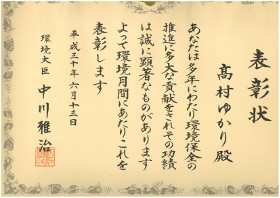 表彰状
高村ゆかり殿
あなたは多年にわたり環境保全の
推進に多大な貢献をされその功績
は誠に顕著なものがあります
よって環境月間にあたりこれを
表彰します
平成三十年六月十三日
環境大臣 中川雅治